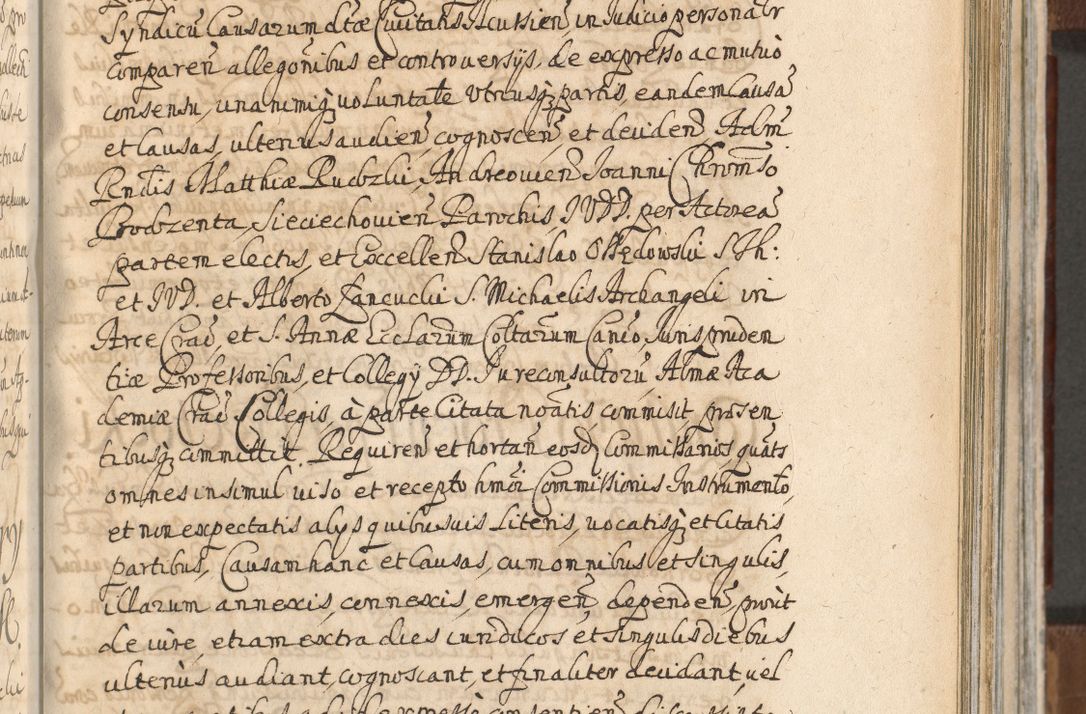 Syndicū Causarum dctæ Civitatis Ilcussien, in Iudicio personalr
comparen allegonibus et controversys, de expresso ac mutuò
consensu, unanimiq voluntate Utriusq partis, eandem Causã
et Causas, ulterius audien, cognoscen, et deciden, Adm
Rndis Matthiæ Rucbzki, Andreovien Joanni Chrom so
Brodzenta, Sieciechovien Parochis, IVDD. per Actorea
partem electis, et Excellen Stanislao Ossędowski S. Th:
et IVD. et Alberto Łancucki S. Michaelis Archangeli in
Arce Crac, et S. Annæ Ecclarum Coltarum Canco, Iuris pruden
tiæ Professoribus, et Collegy DD. Iureconsultorū Almæ Aca
demiæ Crac Collegis, à parte Citata noatis, commisit, præsen
tibusq committit. Requiren et hortan eosd Commissarios, quats
omnes insimul viso et recepto hmoi Commissionis Instrumento,
et non expectatis alys quibusvis Literis, vocatisq et Citatis
partibus, Causam hanc et Causas, cum omnibus et singulis,
illarum annexis, connexis, emergen, dependen, prout
de iure, etiam extra dies iuridicos et singulis diebus
ulterius audiant, cognoscant, et finaliter decidant, vel